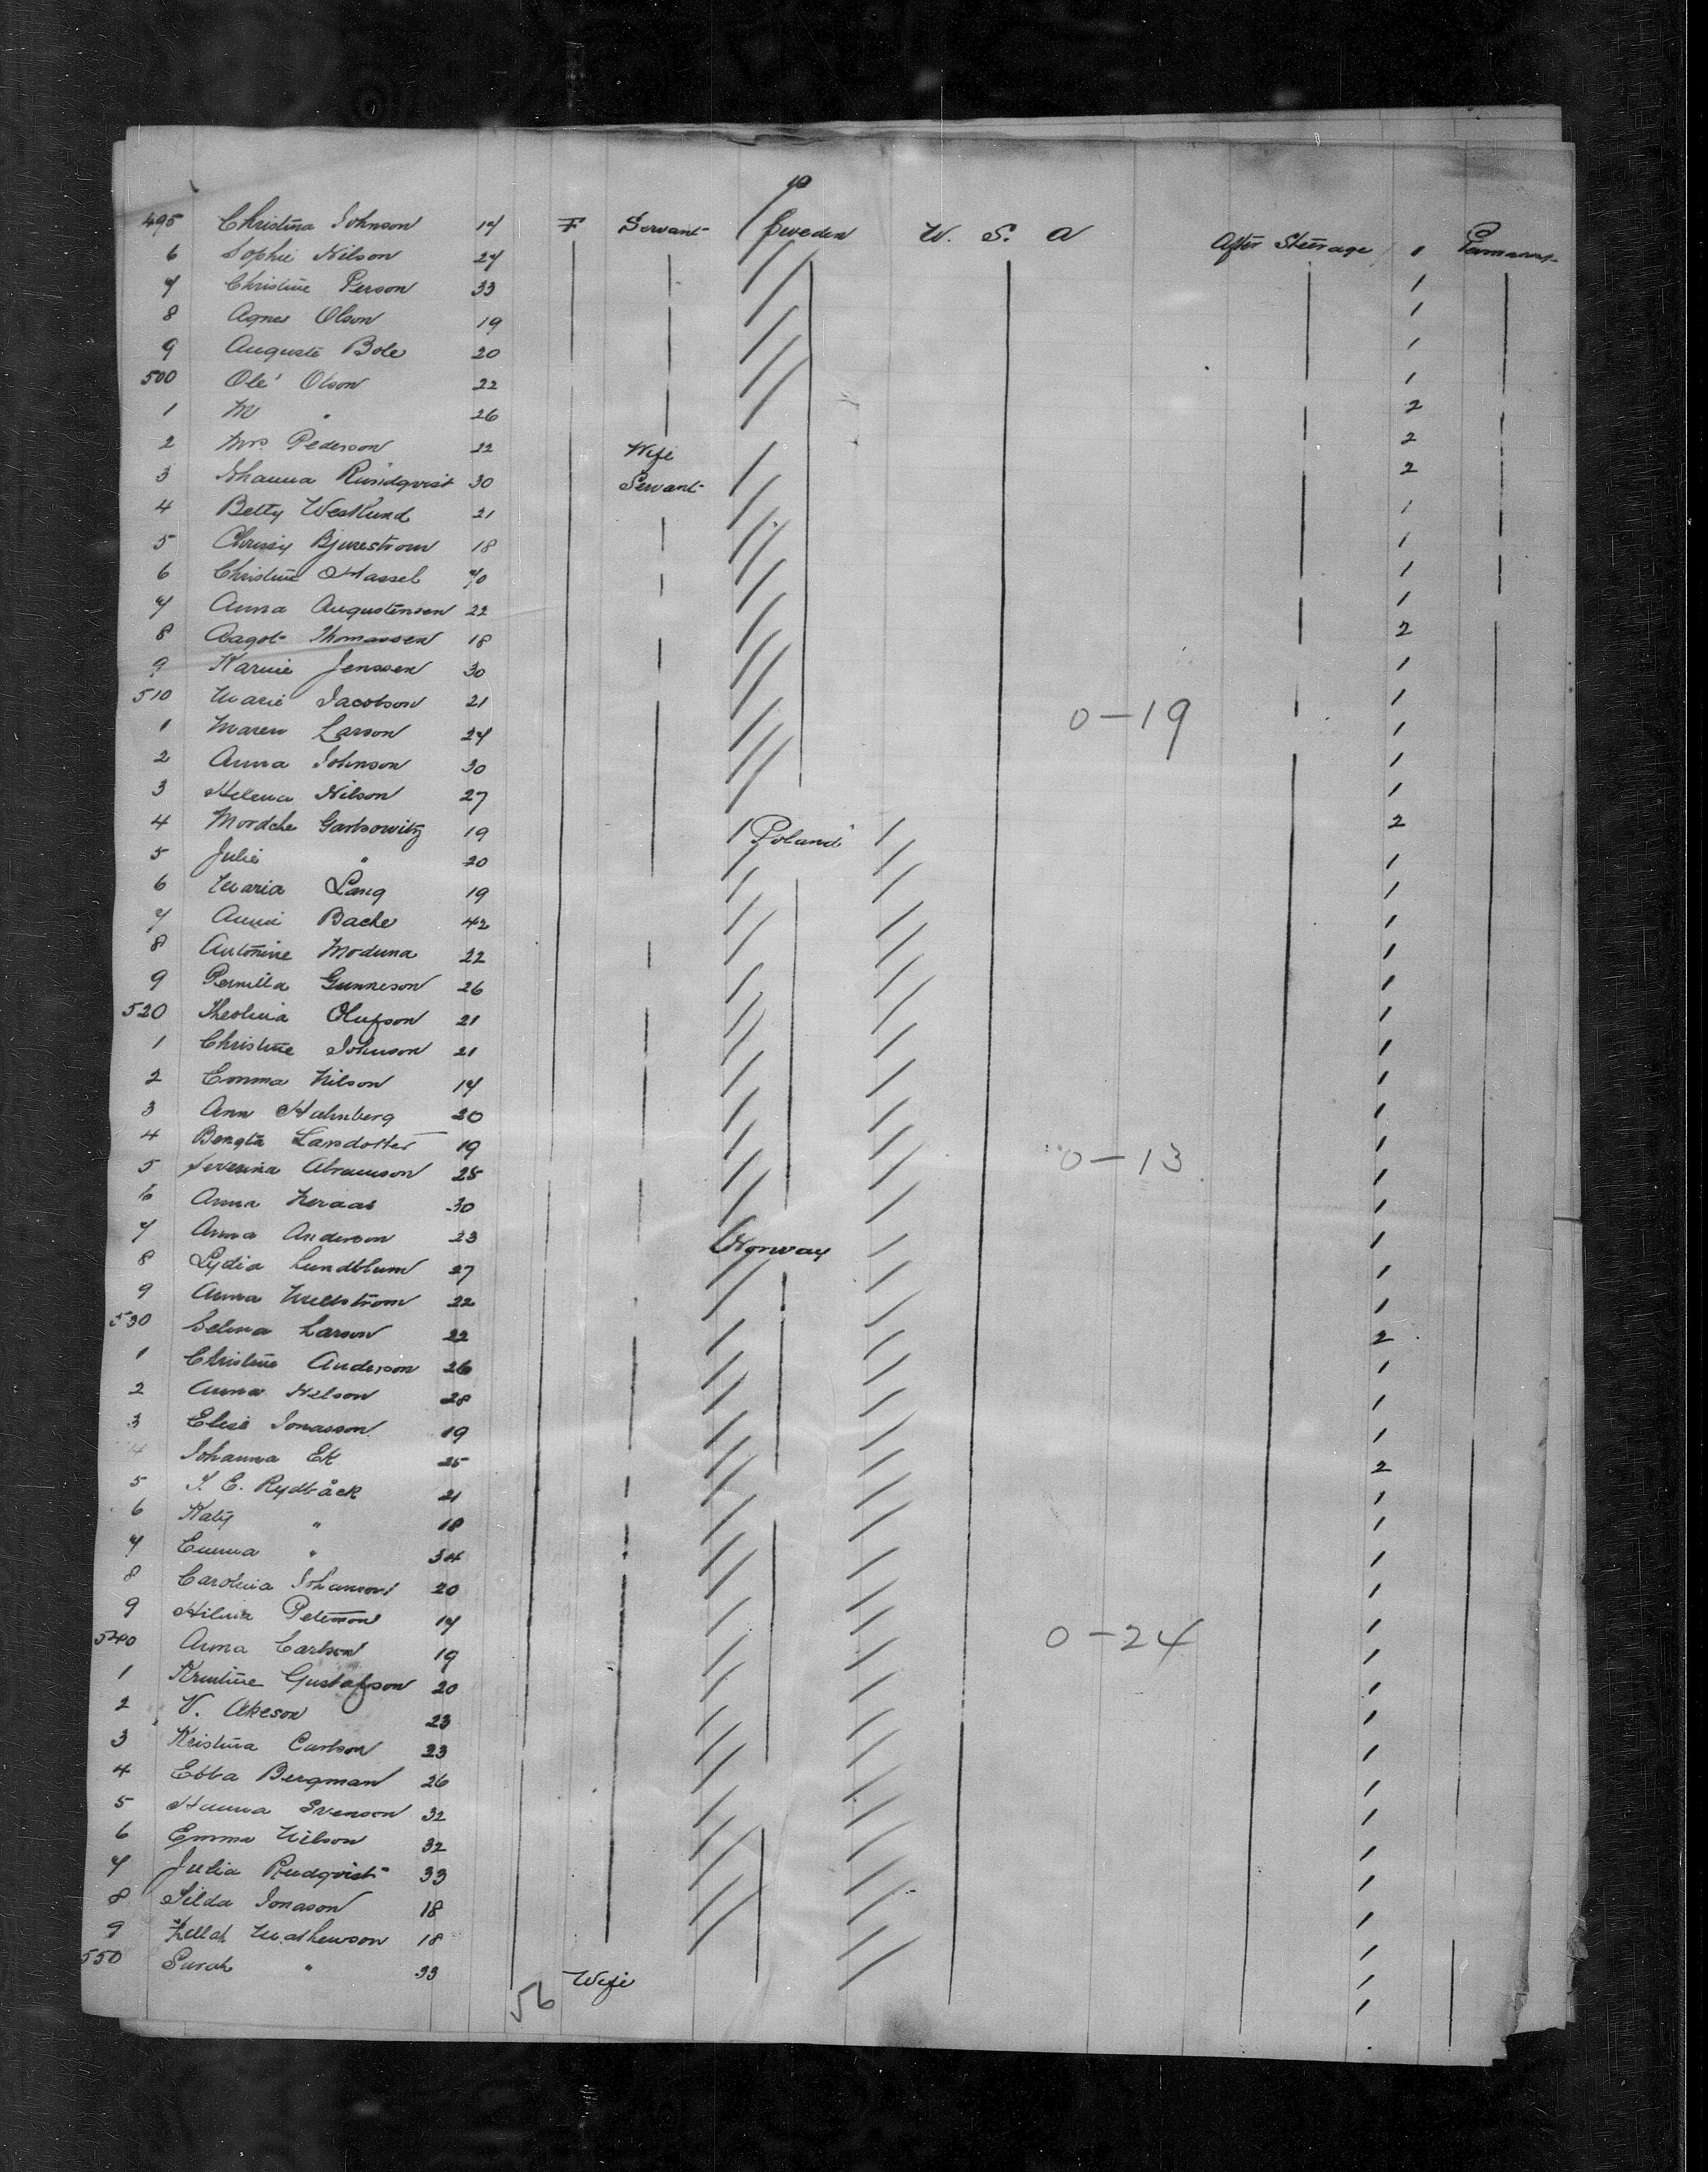 10
495 Christina Johnson 17 F Servant Sweden U. S. A After Steerage 1
6 Sophie Nilson 27 1
7 Christine Person 33 1
8 Agnes Olson 19 1
9 Auguste Bole 20 1
500 Ole' Olson 22 2
1 M " 26 2
2 Mrs Pederson 22 Wife 2
3 Rundqvist 30 Servant 1
4 Betty Westlund 21 1
5 Bjurestrom 18 1
6 Christine Hassel 70 1
7 Anna Augustensen 22 2
8 Aagot Thomassen 18 1
9 Karine Jenssen 30 1
510 Marie Jacobson 21 1
0-19
1 Maren Larson 27 1
2 Anna Johnson 30 1
3 Helena Nilson 27 2
4 Mordche Garbowitz 19 Poland 1
5 Julie " 20 1
6 Maria Lang 19 1
7 Anna Bache 42 1
8 Antonine Moduna 22 1
9 Pernilla Gunneson 26 1
520 Olufson 21 1
1 Christine Johnson 21 1
2 Emma Nilson 17 1
3 Ann Malmberg 20 1
4 Bengta Larsdotter 19 1
0-13
5 Severina Abramson 25 1
6 Anna 30 1
7 Anna Anderson 23 Norway 1
8 Lydia Lundblum 27 1
9 Anna 22 2
530 Selma Larson 22 1
1 Christine Anderson 26 1
2 Anna Nelson 28 1
3 Elise Jonasson 19 2
4 Johanna Ek 25 1
5 J. E. Rydbäck 21 1
6 Katy " 18 1
7 Emma " 34 1
8 Carolina Johanson 20 1
9 Hilma Peterson 17 1
540 Anna Carlson 19 1
0-24
1 Kristine Gustafson 20 1
2 V. Akeson 23 1
3 Kristina Carlson 23 1
4 Ebba Bergman 26 1
5 Hanna Svenson 32 1
6 Emma Nilson 32 1
7 Julia Rudqvist 33 1
8 Jonason 18 1
9 Mathewson 18 1
550 Sarah " 33 Wife 1
56